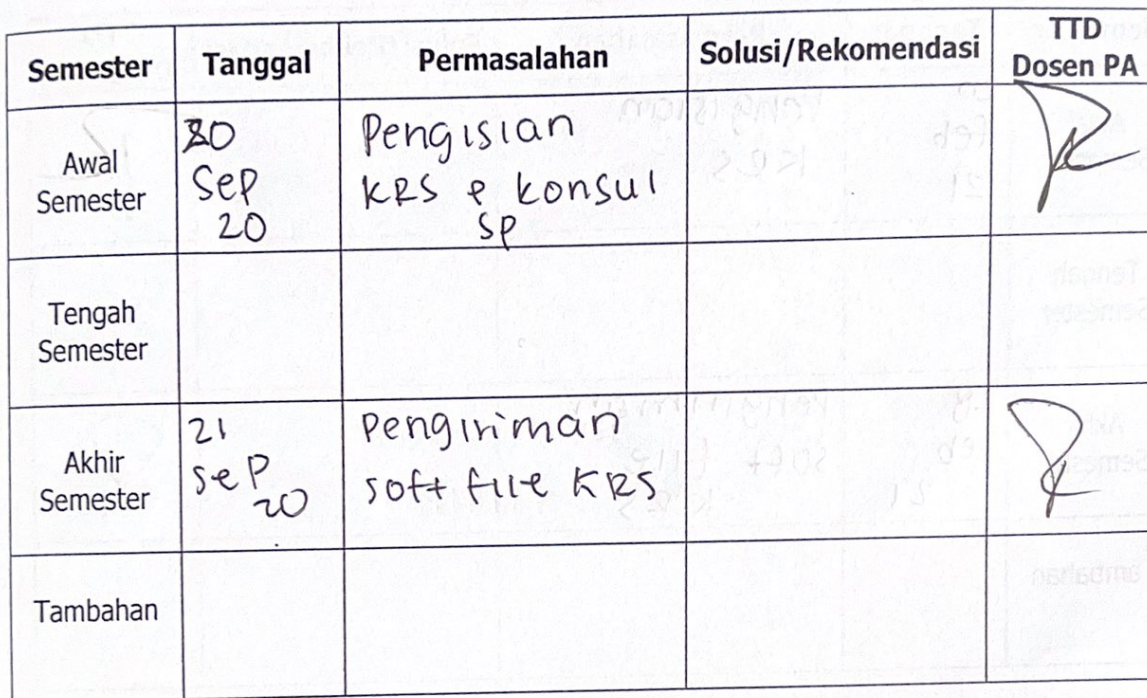 Semester Tanggal Permasalahan Solusi/Rekomendasi TTD
Dosen PA
Awal
Semester
20
Sep
20
Pengisian
KRS & konsul
SP
Tengah
Semester
Akhir
Semester
21
Sep
20
Pengiriman
soft file KRS
Tambahan